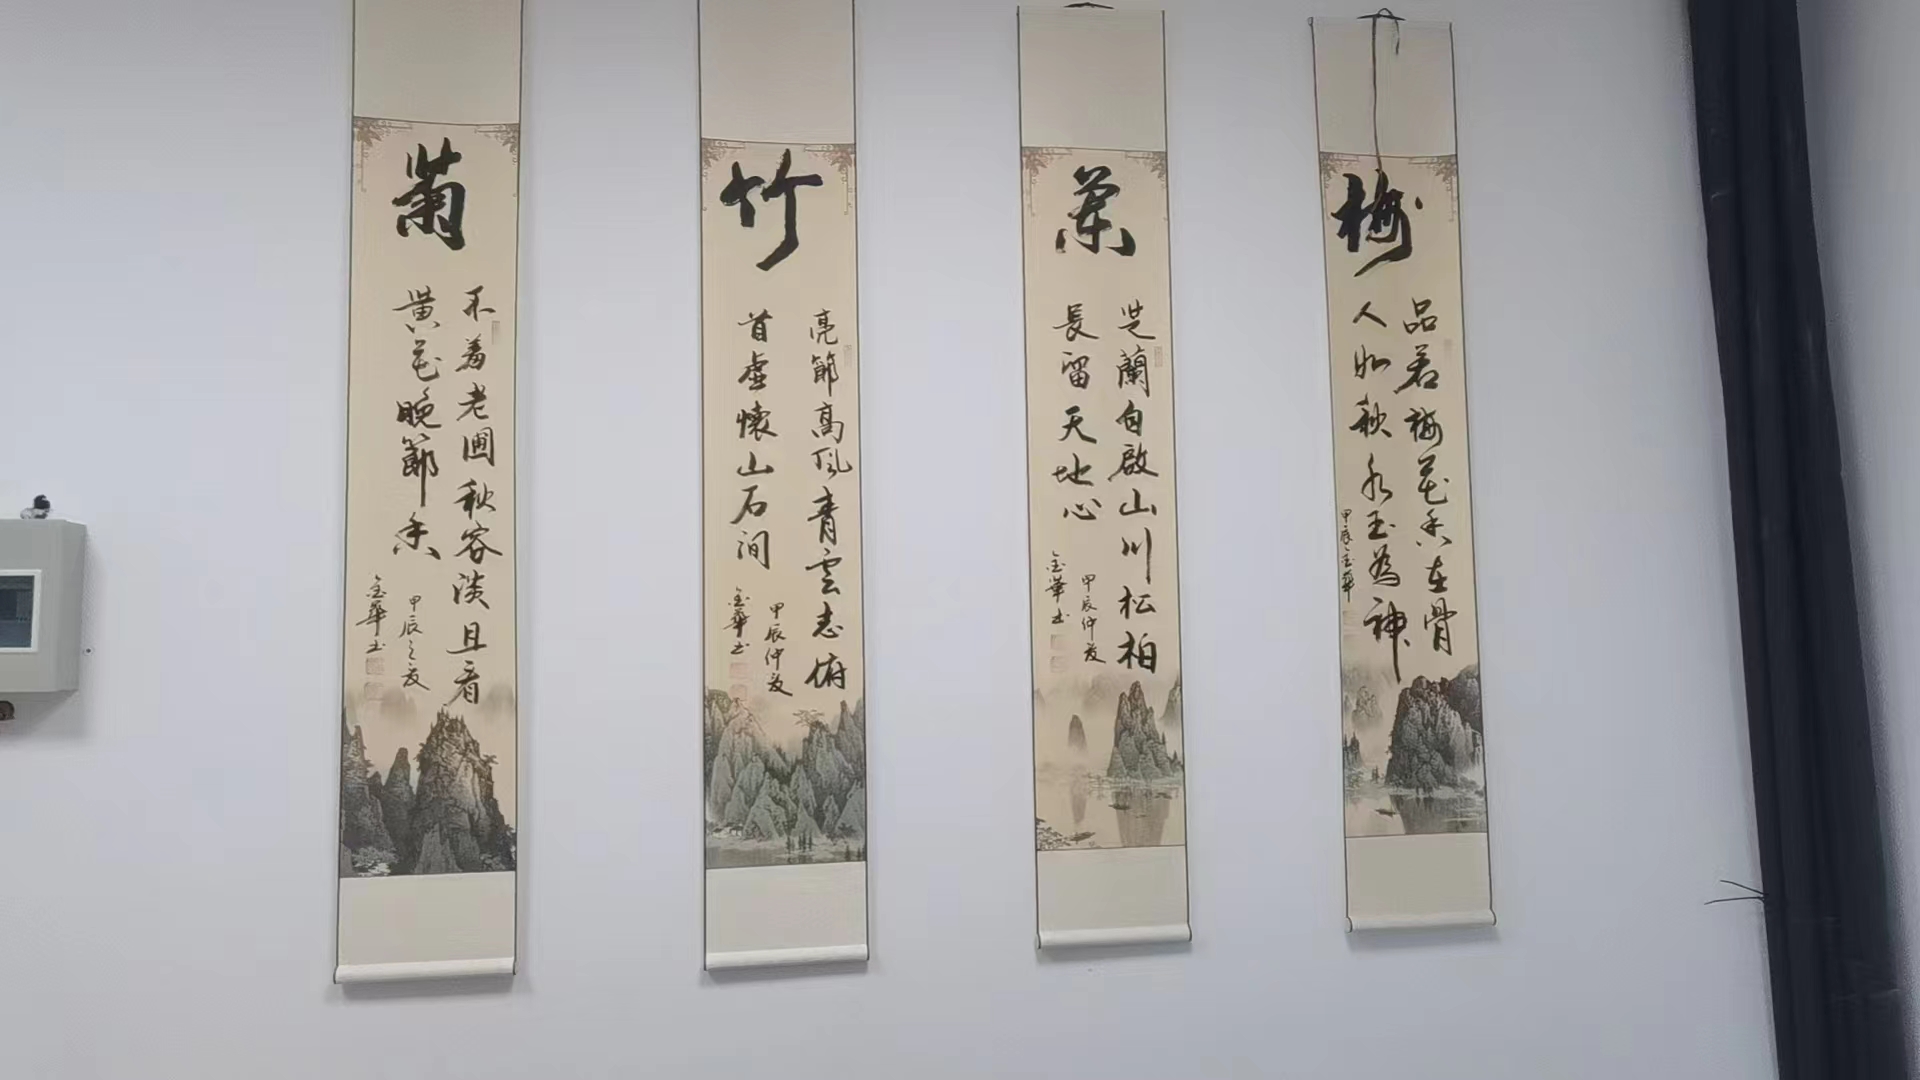 梅
品若梅花香在骨
人如秋水玉為神
甲辰金華
蘭
芝蘭自啟山川松柏
長留天地心
甲辰仲夏
金華书
竹
亮節高风青雲志俯
首虚懷山石间
甲辰仲夏
金華书
菊
不羞老圃秋容淡且看
黄花晚節香
甲辰之夏
金華书